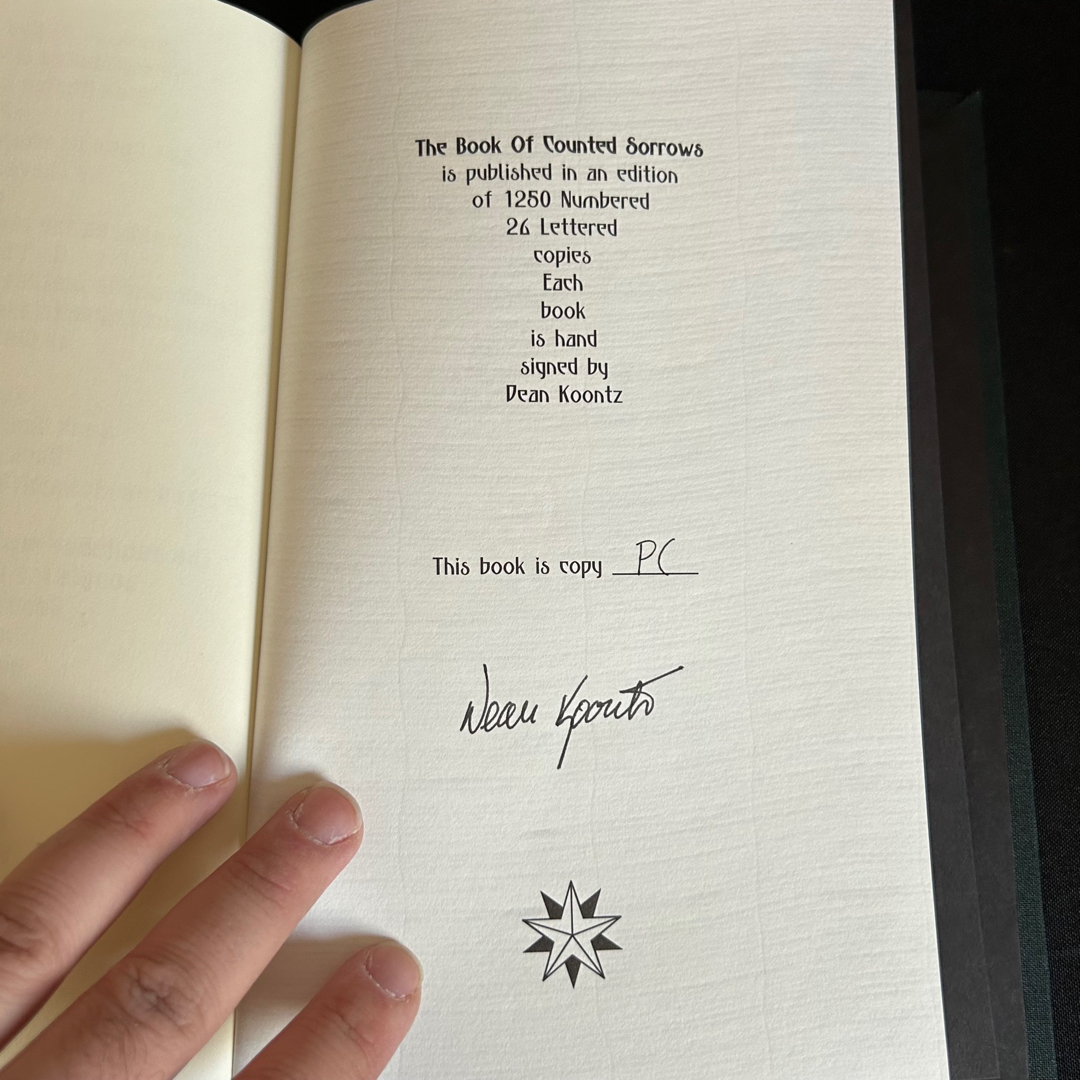 The Book Of Counted Sorrows
is published in an edition
of 1250 Numbered
26 Lettered
copies
Each
book
is hand
signed by
Dean Koontz
This book is copy PC
Dean Koontz